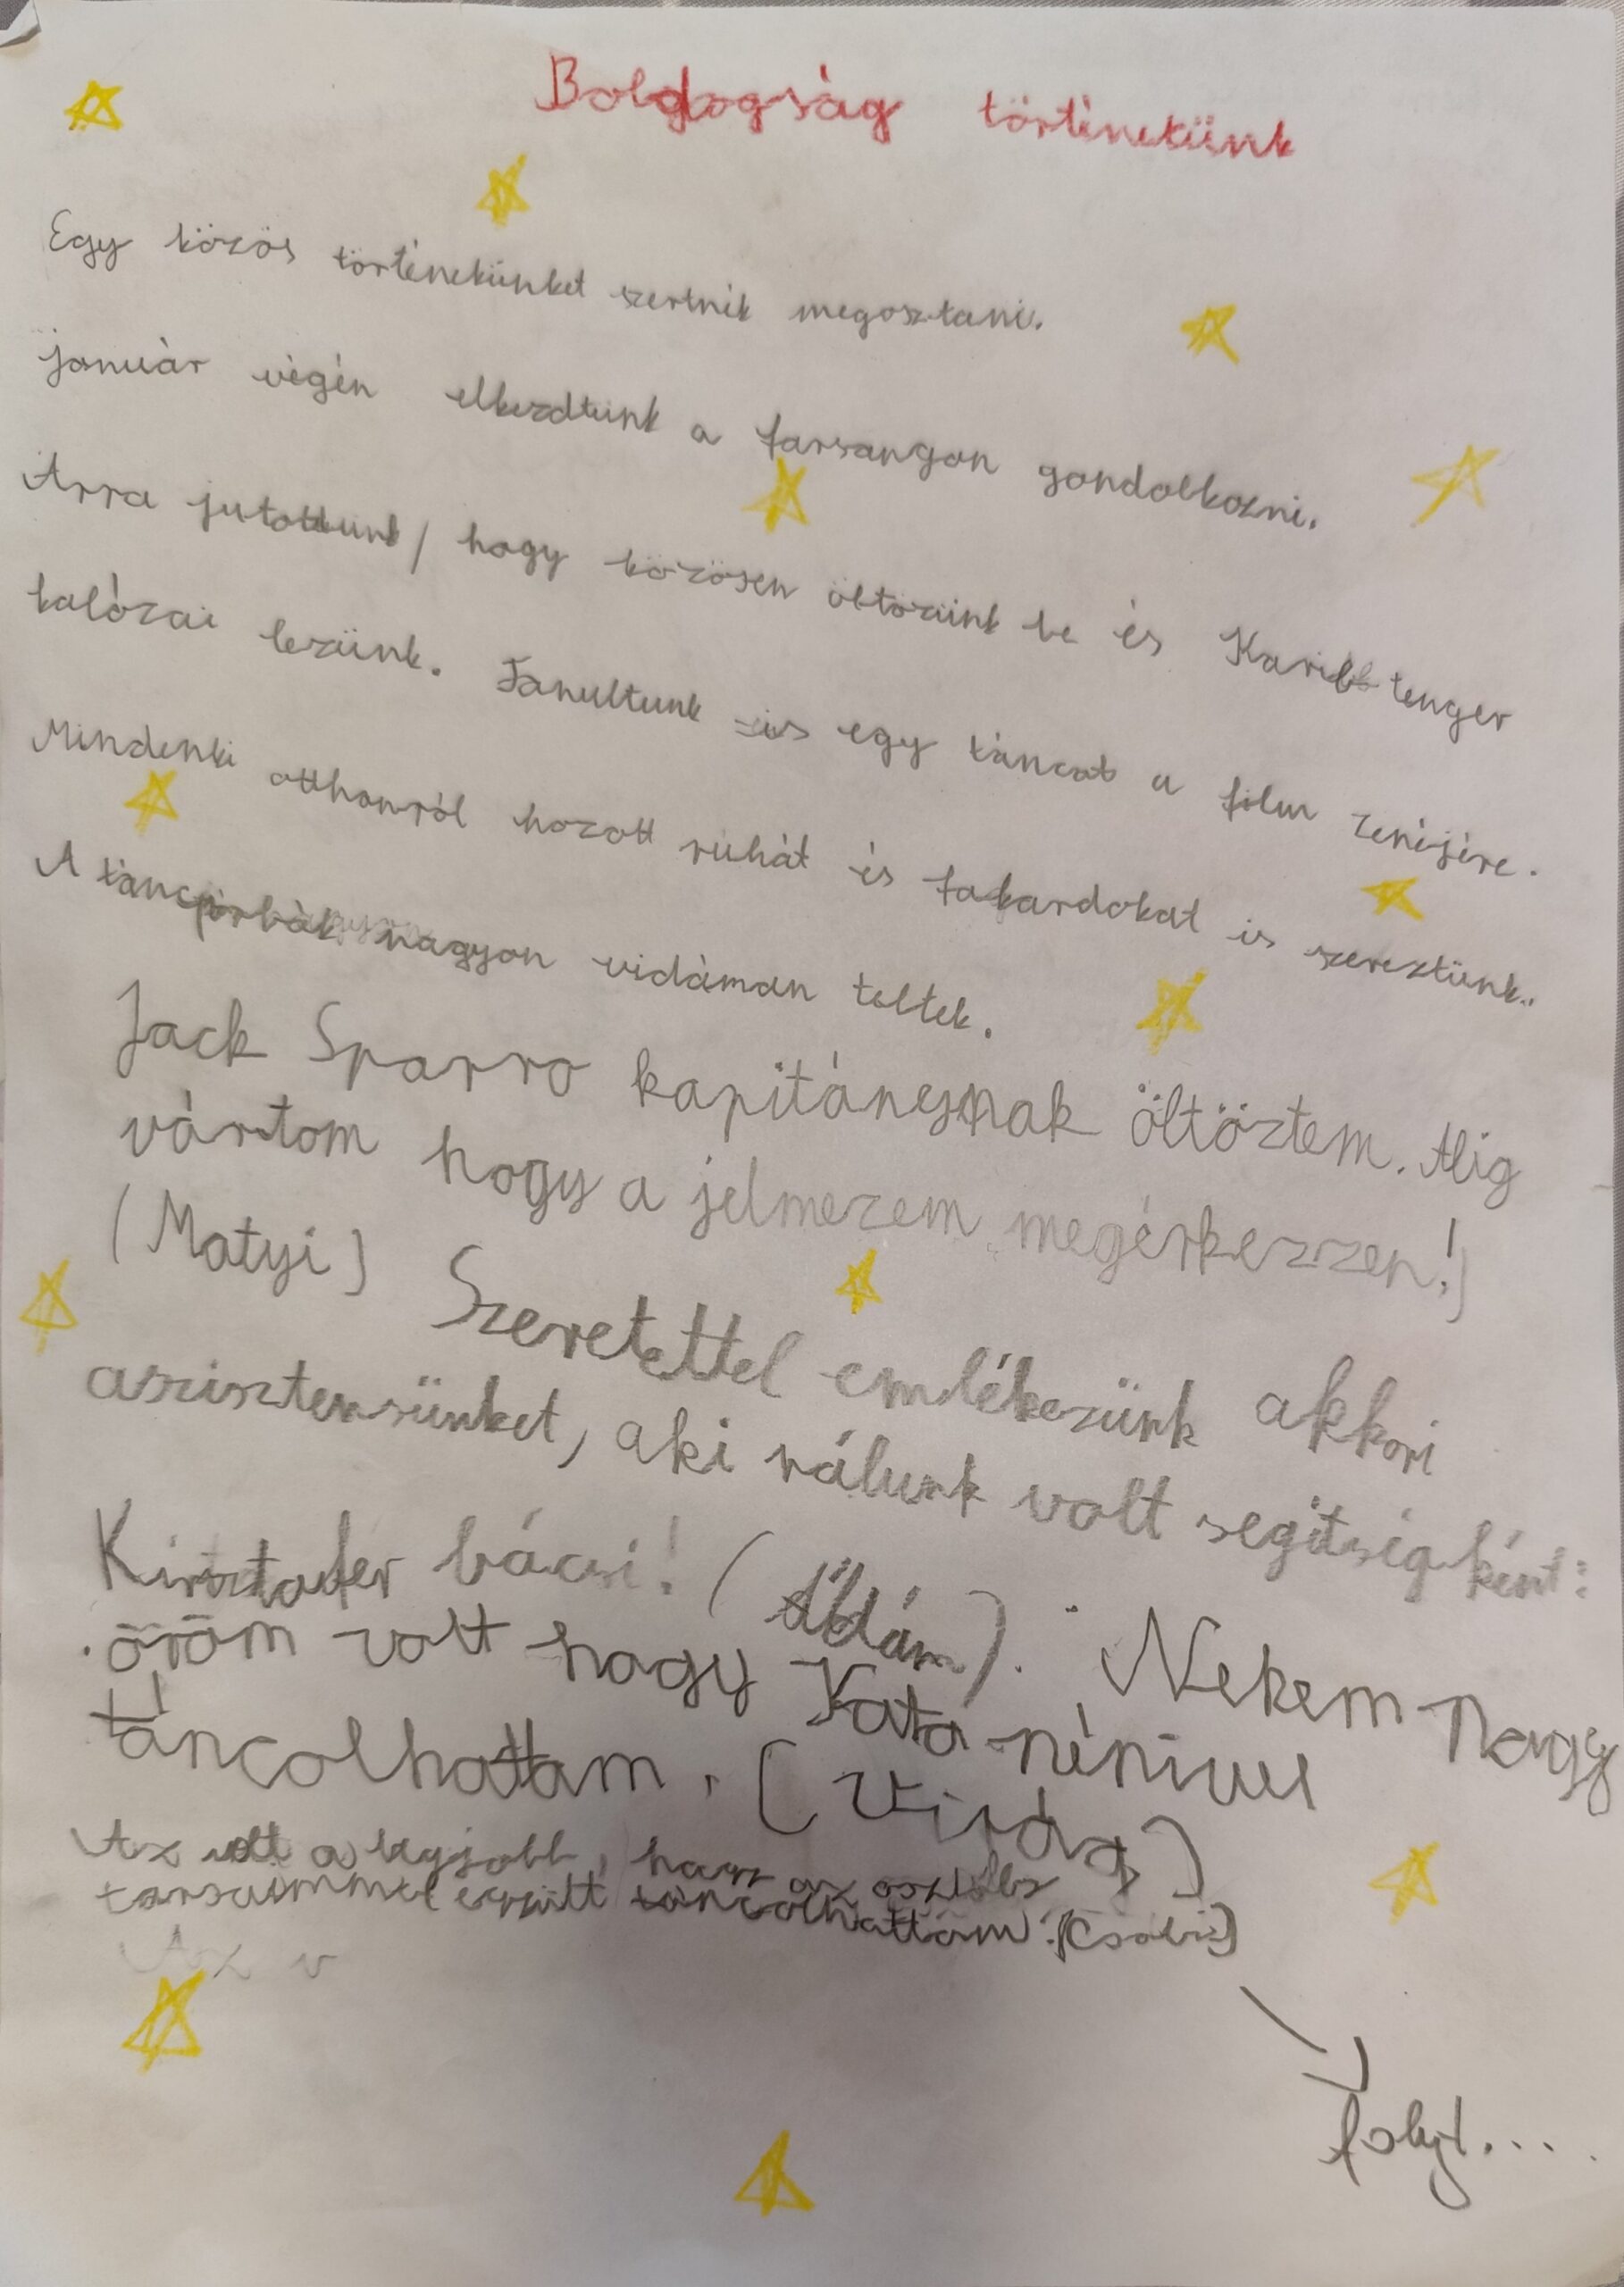 Boldogság történekünk
Egy közös történekünket szertnik megosztani.
január végén elkezdtünk a farsangon gondolkozni.
Arra jutottunk, hogy közösen öltözünk be és Karib tenger
kalózai lezünk. Tanultunk is egy táncot a film zenéjére.
Mindenki otthonról hozott ruhát és fakardokat is szereztünk..
A táncpórbák nagyon vidáman teltek.
Jack Sparro kapitánynak öltöztem. Alig
vártom hogy a jelmezem megérkezzen!)
(Matyi) Szeretettel emlékezünk akkori
aszisztensünket, aki nálunk volt segítségként:
Kirsztofer bácsi! (Ádám). Nekem nagy
öröm volt hogy Kata nénivel
táncolhattam. (Virág)
Az volt a legjobb, hogy az osztálly
társaimmal együtt táncolhattam. (Csabi)
Az v
folyt...